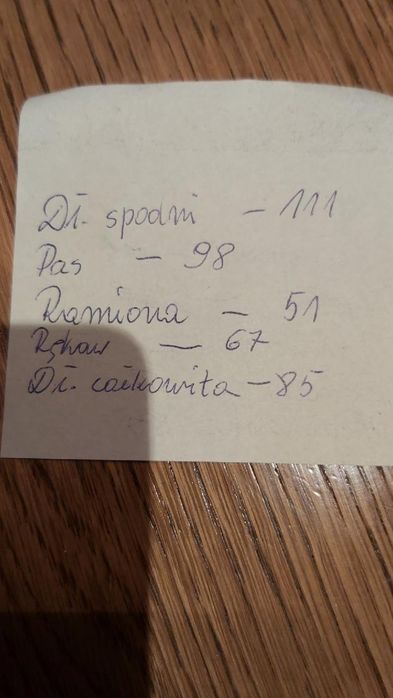 Dł. spodni - 111
Pas - 98
Ramiona - 51
Rękaw - 67
Dł. całkowita - 85